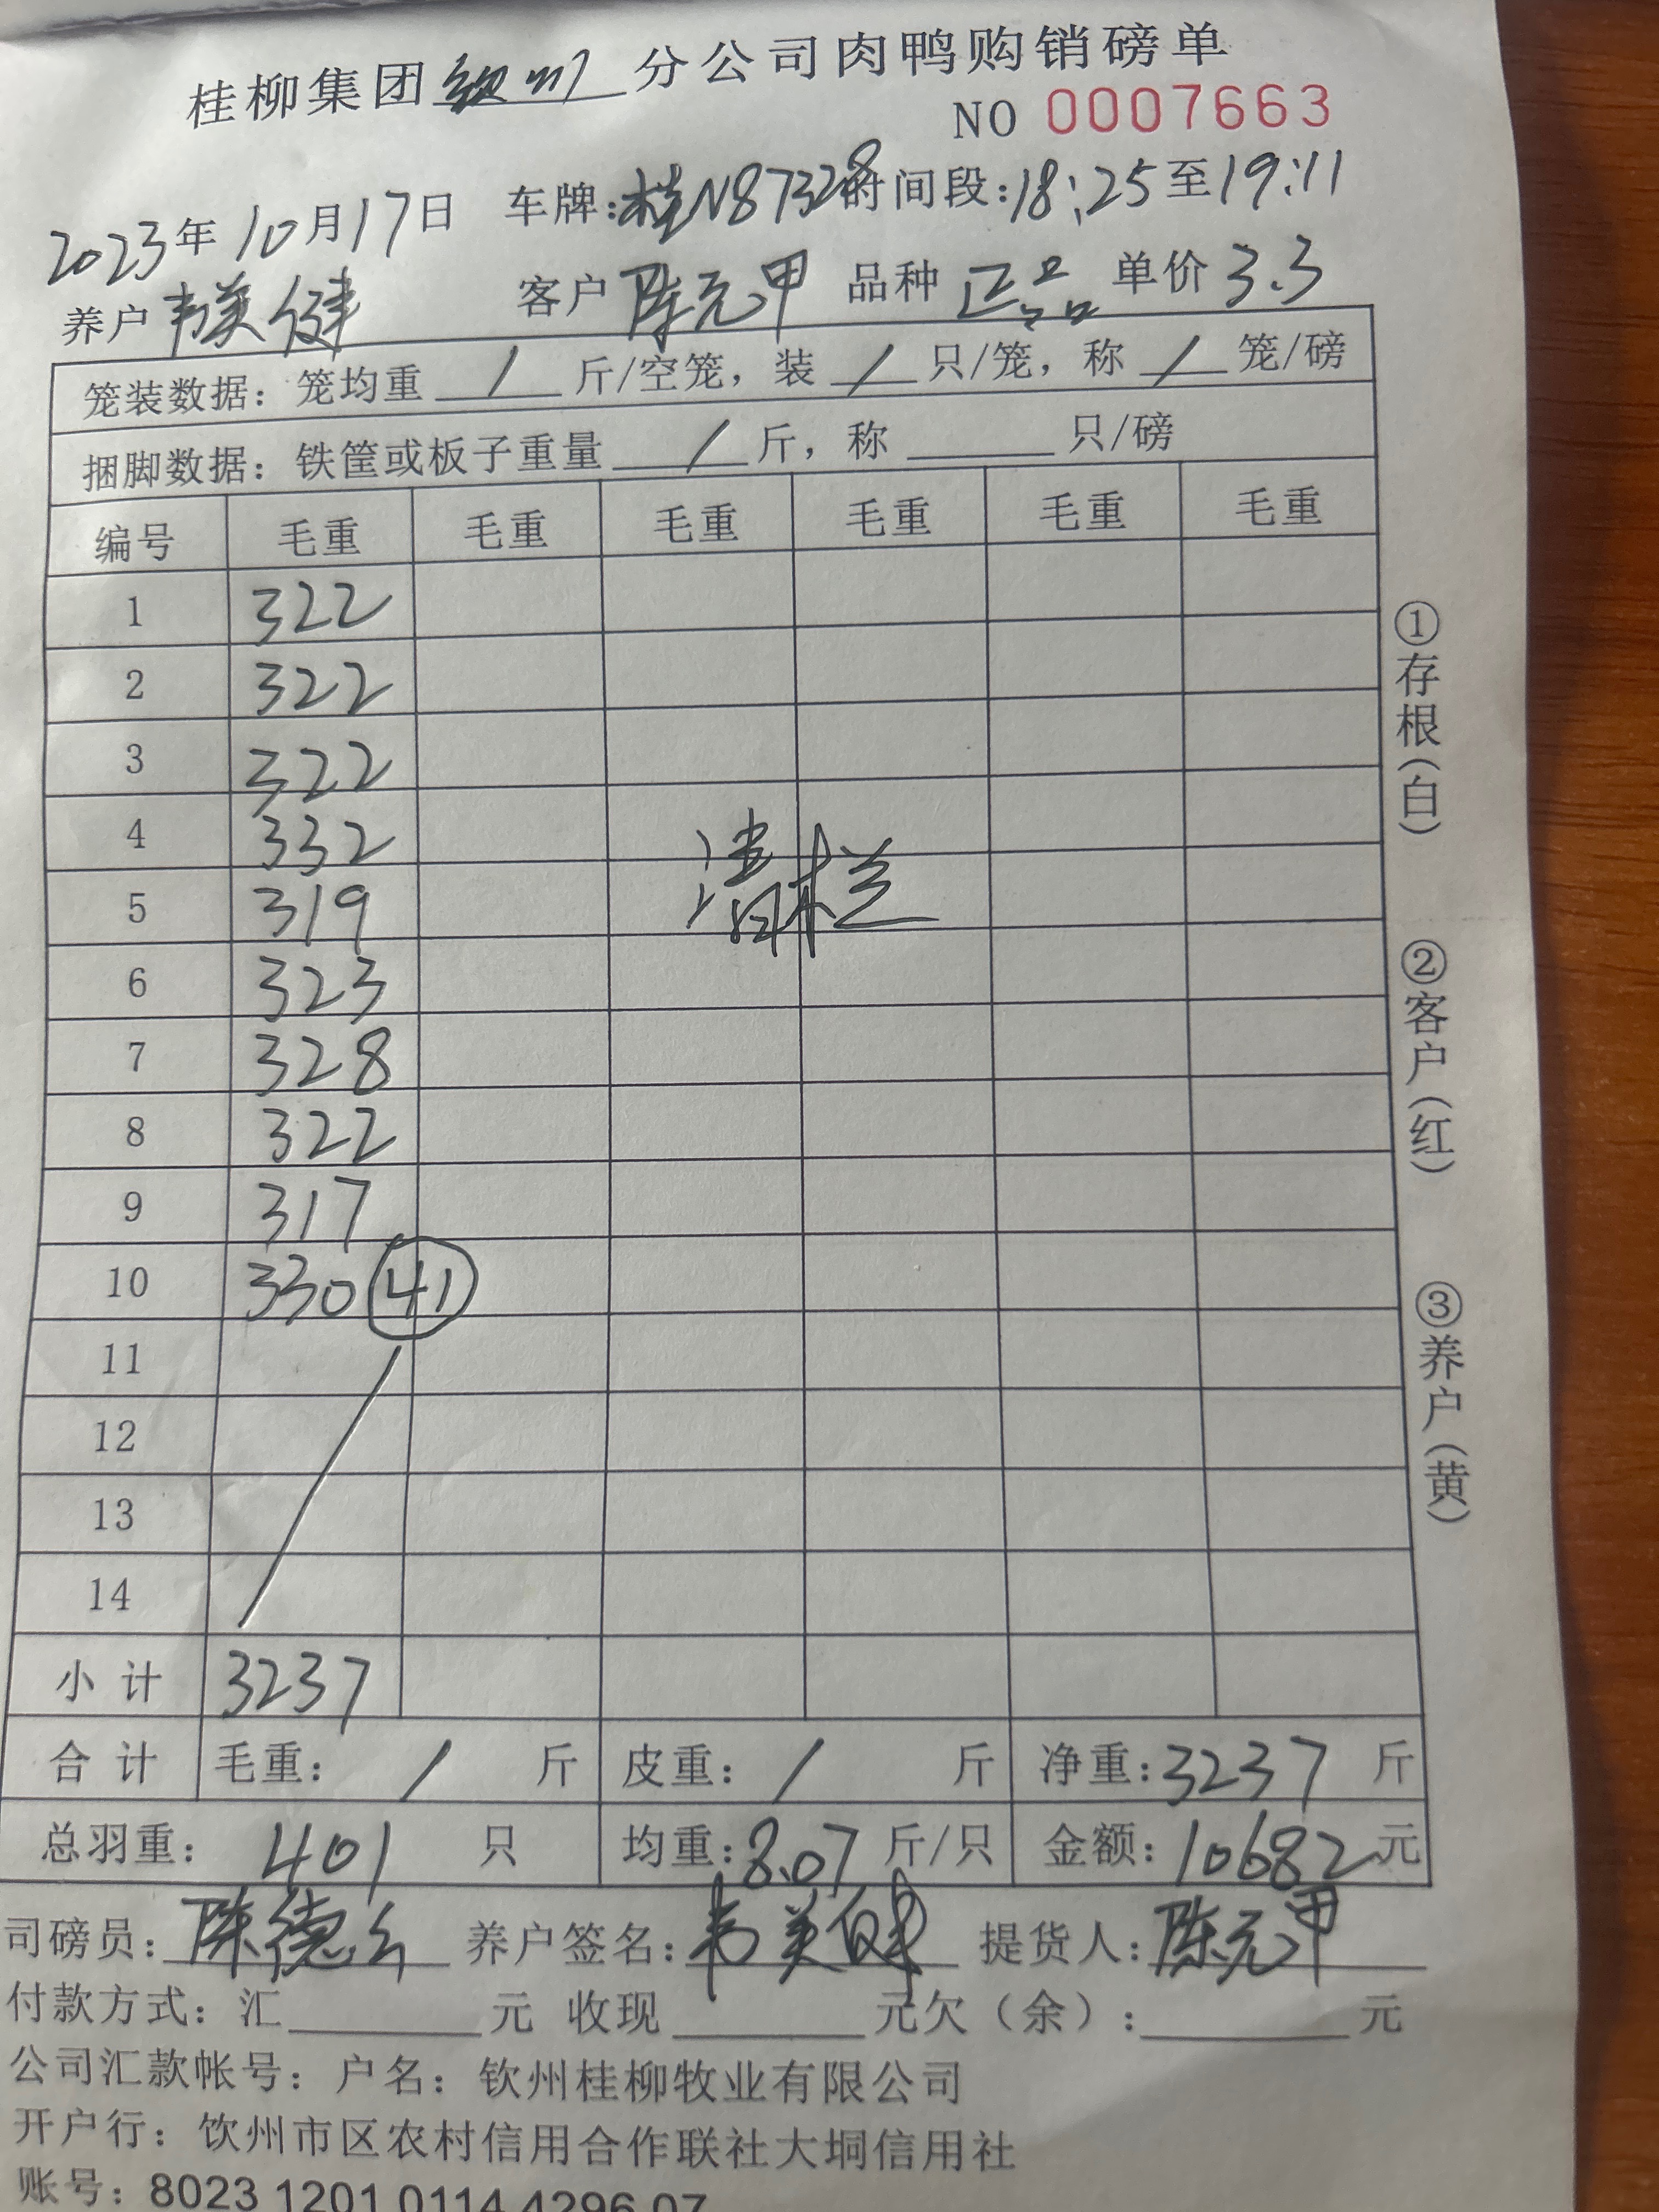 桂柳集团钦州分公司肉鸭购销磅单
NO 0007663
2023年10月17日 车牌:桂N87328时间段:18:25至19:11
养户韦美健 客户陈元甲 品种正品 单价3.3
笼装数据：笼均重 / 斤/空笼，装 / 只/笼，称 / 笼/磅
捆脚数据：铁筐或板子重量 / 斤，称 只/磅
编号 毛重 毛重 毛重 毛重 毛重 毛重
1 322
2 322
3 322
4 332
5 319
6 323
7 328
8 322
9 317
10 330 41
11
12
13
14
清栏
小计 3237
合计 毛重： / 斤 皮重： / 斤 净重：3237 斤
总羽重： 401 只 均重：8.07 斤/只 金额：10682元
司磅员：陈德 养户签名：韦美健 提货人：陈元甲
付款方式：汇 元 收现 元欠（余）： 元
公司汇款帐号：户名：钦州桂柳牧业有限公司
开户行：饮州市区农村信用合作联社大垌信用社
账号：8023 1201 0114 4296 07
①存根（白）
②客户（红）
③养户（黄）